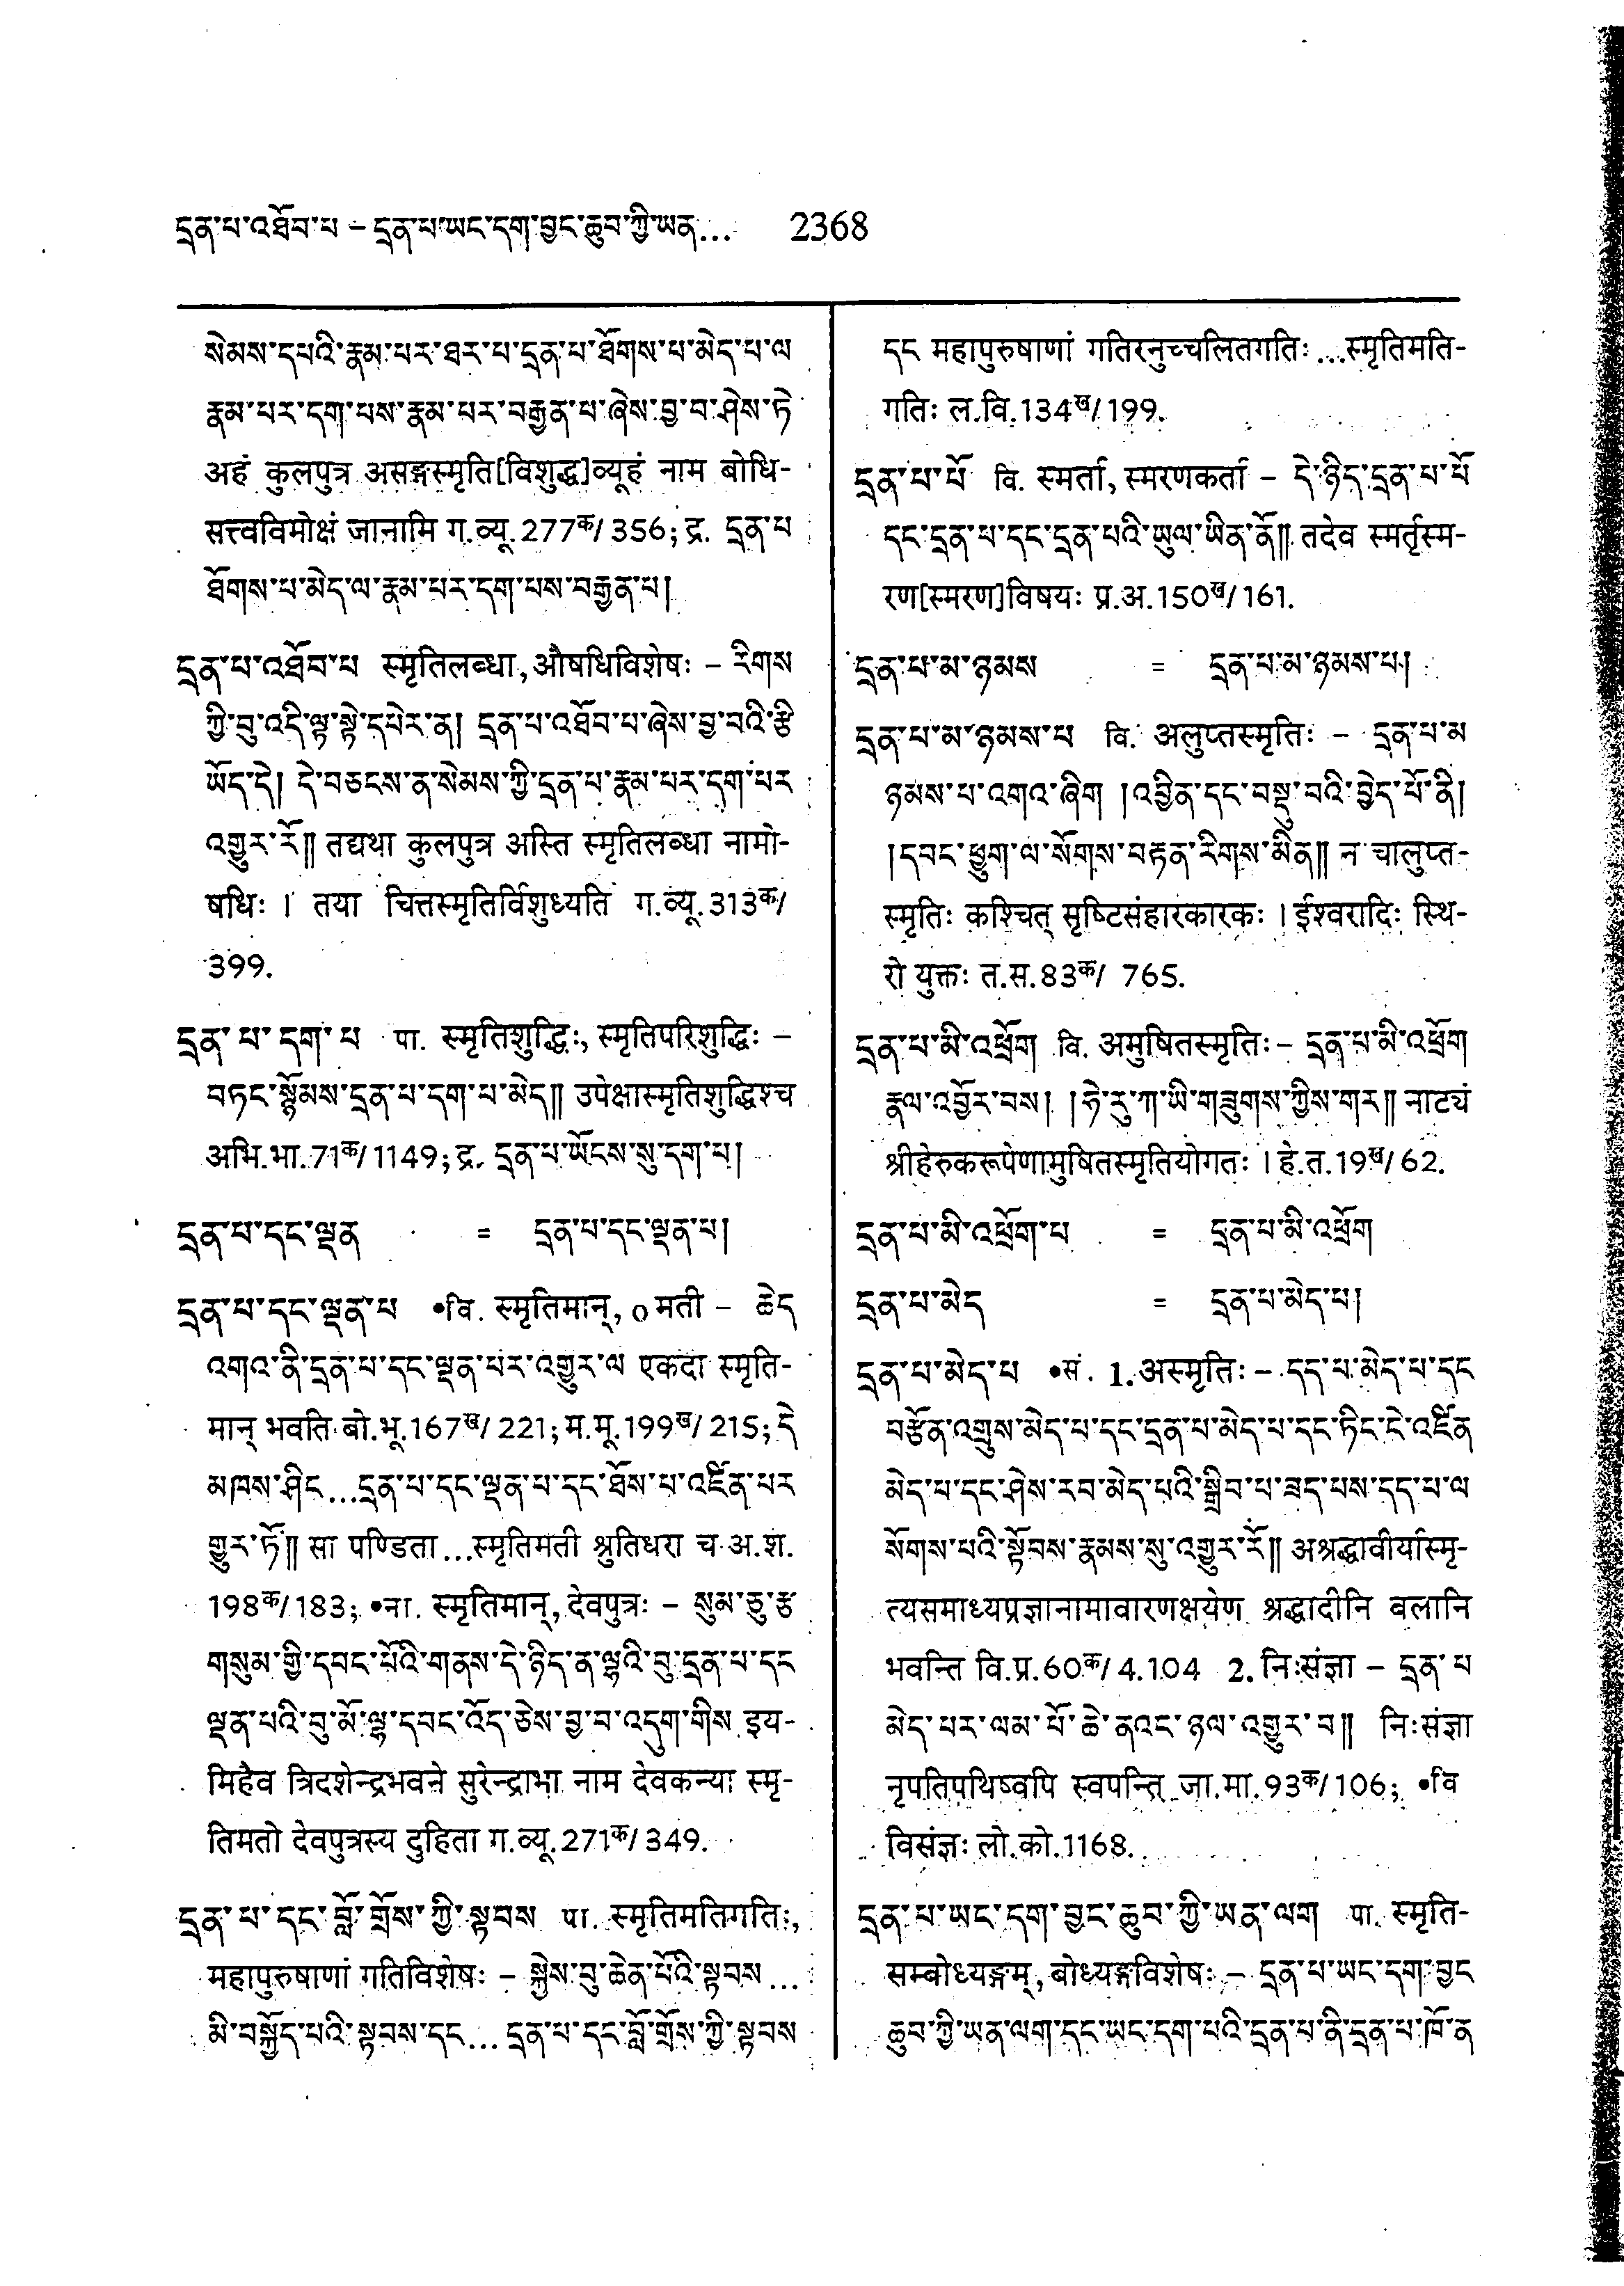 དྲན་པ་འཐོབ་པ – དྲན་པ་ཡང་དག་བྱང་ཆུབ་ཀྱི་ཡན... 2368
སེམས་དཔའི་རྣམ་པར་ཐར་པ་དྲན་པ་ཐོགས་པ་མེད་པ་ལ
རྣམ་པར་དག་པས་རྣམ་པར་བརྒྱན་པ་ཞེས་བྱ་བ་ཤེས་ཏེ
अहं कुलपुत्र असङ्गस्मृति[विशुद्ध]व्यूहं नाम बोधि-
सत्त्वविमोक्षं जानामि ग.व्यू.277क/356; द्र. དྲན་པ
ཐོགས་པ་མེད་ལ་རྣམ་པར་དག་པས་བརྒྱན་པ།
དྲན་པ་འཐོབ་པ स्मृतिलब्धा, औषधिविशेषः – རིགས
ཀྱི་བུ་འདི་ལྟ་སྟེ་དཔེར་ན། དྲན་པ་འཐོབ་པ་ཞེས་བྱ་བའི་རྩི
ཡོད་དེ། དེ་བཅངས་ན་སེམས་ཀྱི་དྲན་པ་རྣམ་པར་དག་པར
འགྱུར་རོ༎ तद्यथा कुलपुत्र अस्ति स्मृतिलब्धा नामो-
षधिः । तया चित्तस्मृतिर्विशुध्यति ग.व्यू.313क/
399.
དྲན་པ་དག་པ पा. स्मृतिशुद्धिः, स्मृतिपरिशुद्धिः –
བཏང་སྙོམས་དྲན་པ་དག་པ་མེད༎ उपेक्षास्मृतिशुद्धिश्च
अभि.भा.71क/1149; द्र. དྲན་པ་ཡོངས་སུ་དག་པ།
དྲན་པ་དང་ལྡན = དྲན་པ་དང་ལྡན་པ།
དྲན་པ་དང་ལྡན་པ •वि. स्मृतिमान्, ०मती – ཆེད
འགའ་ནི་དྲན་པ་དང་ལྡན་པར་འགྱུར་ལ एकदा स्मृति-
मान् भवति बो.भू.167ख/221; म.मू.199ख/215; དེ
མཁས་ཤིང...དྲན་པ་དང་ལྡན་པ་དང་ཐོས་པ་འཛིན་པར
གྱུར་ཏོ༎ सा पण्डिता...स्मृतिमती श्रुतिधरा च अ.श.
198क/183; •ना. स्मृतिमान्, देवपुत्रः – སུམ་ཅུ་རྩ
གསུམ་གྱི་དབང་པོའི་གནས་དེ་ཉིད་ན་ལྷའི་བུ་དྲན་པ་དང
ལྡན་པའི་བུ་མོ་ལྷ་དབང་འོད་ཅེས་བྱ་བ་འདུག་གིས इय-
मिहैव त्रिदशेन्द्रभवने सुरेन्द्राभा नाम देवकन्या स्मृ-
तिमतो देवपुत्रस्य दुहिता ग.व्यू.271क/349.
དྲན་པ་དང་བློ་གྲོས་ཀྱི་སྟབས पा. स्मृतिमतिगतिः,
महापुरुषाणां गतिविशेषः – སྐྱེས་བུ་ཆེན་པོའི་སྟབས...
མི་བསྐྱོད་པའི་སྟབས་དང... དྲན་པ་དང་བློ་གྲོས་ཀྱི་སྟབས
དང महापुरुषाणां गतिरनुच्चलितगतिः...स्मृतिमति-
गतिः ल.वि.134ख/199.
དྲན་པ་པོ वि. स्मर्ता, स्मरणकर्ता – དེ་ཉིད་དྲན་པ་པོ
དང་དྲན་པ་དང་དྲན་པའི་ཡུལ་ཡིན་ནོ༎ तदेव स्मर्तृस्म-
रण[स्मरण]विषयः प्र.अ.150ख/161.
དྲན་པ་མ་ཉམས = དྲན་པ་མ་ཉམས་པ།
དྲན་པ་མ་ཉམས་པ वि. अलुप्तस्मृतिः – དྲན་པ་མ
ཉམས་པ་འགའ་ཞིག །འབྱིན་དང་བསྡུ་བའི་བྱེད་པོ་ནི།
།དབང་ཕྱུག་ལ་སོགས་བརྟན་རིགས་མིན༎ न चालुप्त-
स्मृतिः कश्चित् सृष्टिसंहारकारकः । ईश्वरादिः स्थि-
रो युक्तः त.स.83क/ 765.
དྲན་པ་མི་འཕྲོག वि. अमुषितस्मृतिः – དྲན་པ་མི་འཕྲོག
རྣལ་འབྱོར་བས། །ཧེ་རུ་ཀ་ཡི་གཟུགས་ཀྱིས་གར༎ नाट्यं
श्रीहेरुकरूपेणामुषितस्मृतियोगतः । हे.त.19ख/62.
དྲན་པ་མི་འཕྲོག་པ = དྲན་པ་མི་འཕྲོག
དྲན་པ་མེད = དྲན་པ་མེད་པ།
དྲན་པ་མེད་པ •सं. 1. अस्मृतिः – དད་པ་མེད་པ་དང
བརྩོན་འགྲུས་མེད་པ་དང་དྲན་པ་མེད་པ་དང་ཏིང་ངེ་འཛིན
མེད་པ་དང་ཤེས་རབ་མེད་པའི་སྒྲིབ་པ་ཟད་པས་དད་པ་ལ
སོགས་པའི་སྟོབས་རྣམས་སུ་འགྱུར་རོ༎ अश्रद्धावीर्यास्मृ-
त्यसमाध्यप्रज्ञानामावारणक्षयेण श्रद्धादीनि बलानि
भवन्ति वि.प्र.60क/4.104 2. निःसंज्ञा – དྲན་པ
མེད་པར་ལམ་པོ་ཆེ་ནའང་ཉལ་འགྱུར་བ༎ निःसंज्ञा
नृपतिपथिष्वपि स्वपन्ति जा.मा.93क/106; •वि
विसंज्ञः लो.को.1168.
དྲན་པ་ཡང་དག་བྱང་ཆུབ་ཀྱི་ཡན་ལག पा. स्मृति-
सम्बोध्यङ्गम्, बोध्यङ्गविशेषः – དྲན་པ་ཡང་དག་བྱང
ཆུབ་ཀྱི་ཡན་ལག་དང་ཡང་དག་པའི་དྲན་པ་ནི་དྲན་པ་ཁོ་ན